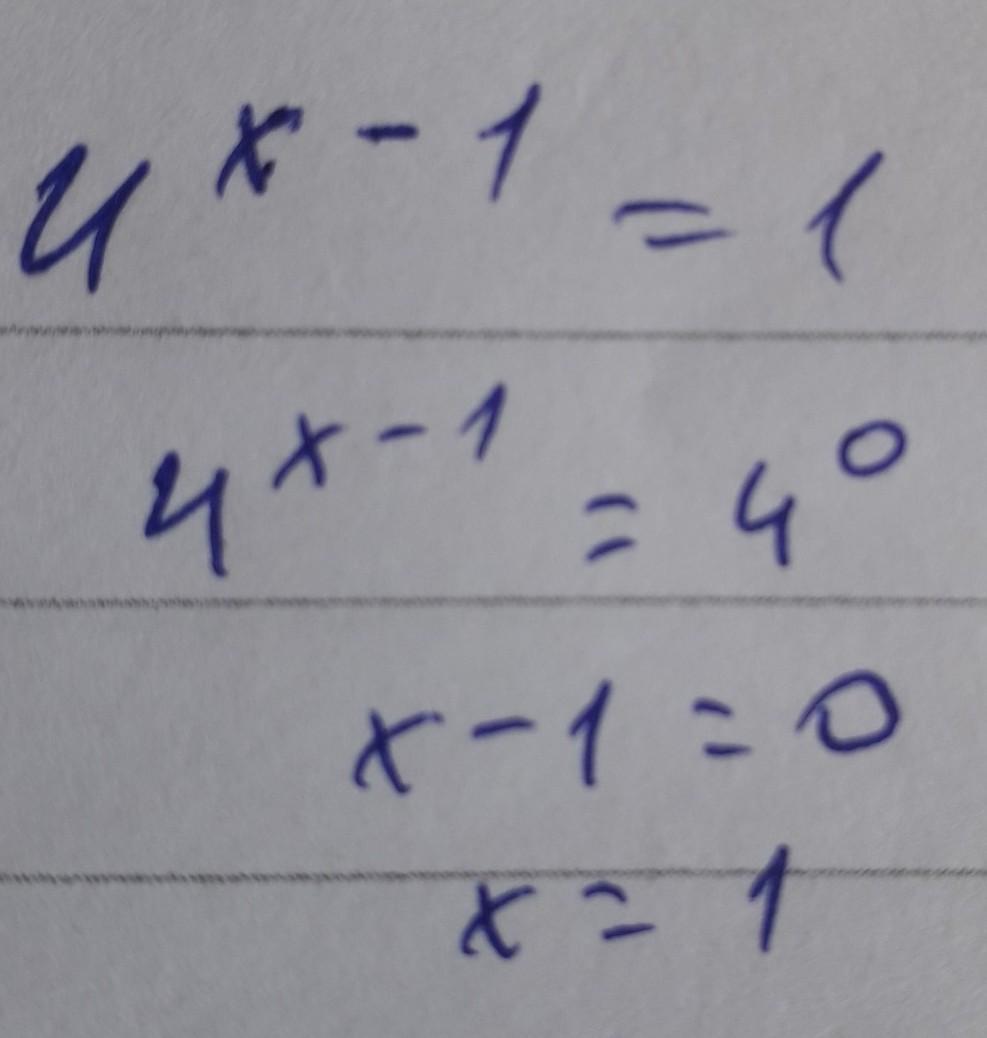 4^{x-1} = 1
4^{x-1} = 4^0
x-1 = 0
x = 1